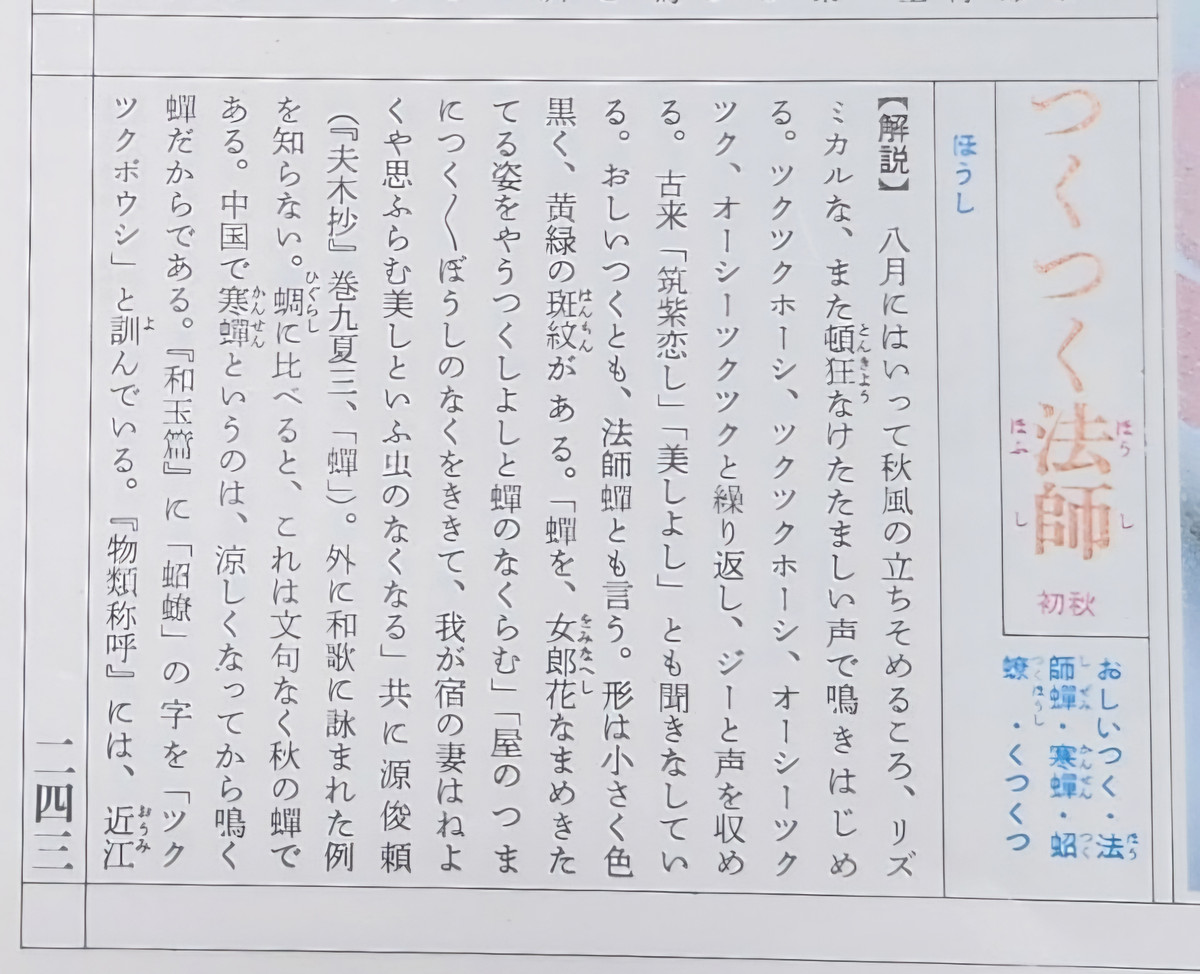 つくつく法師
初秋
おしいつく・法
師蟬・寒蟬・蛁
蟟・くつくつ
ほうし
【解説】 八月にはいって秋風の立ちそめるころ、リズ
ミカルな、また頓狂なけたたましい声で鳴きはじめ
る。ツクツクホーシ、ツクツクホーシ、オーシーツク
ツク、オーシーツクツクと繰り返し、ジーと声を収め
る。古来「筑紫恋し」「美しよし」とも聞きなしてい
る。おしいつくとも、法師蟬とも言う。形は小さく色
黒く、黄緑の斑紋がある。「蟬を、女郎花なまめきた
てる姿をやうつくしよしと蟬のなくらむ」「屋のつま
につく〱ぼうしのなくをききて、我が宿の妻はねよ
くや思ふらむ美しといふ虫のなくなる」共に源俊頼
（『夫木抄』巻九夏三、「蟬」）。外に和歌に詠まれた例
を知らない。蜩に比べると、これは文句なく秋の蟬で
ある。中国で寒蟬というのは、涼しくなってから鳴く
蟬だからである。『和玉篇』に「蛁蟟」の字を「ツク
ツクボウシ」と訓んでいる。『物類称呼』には、近江
二四三